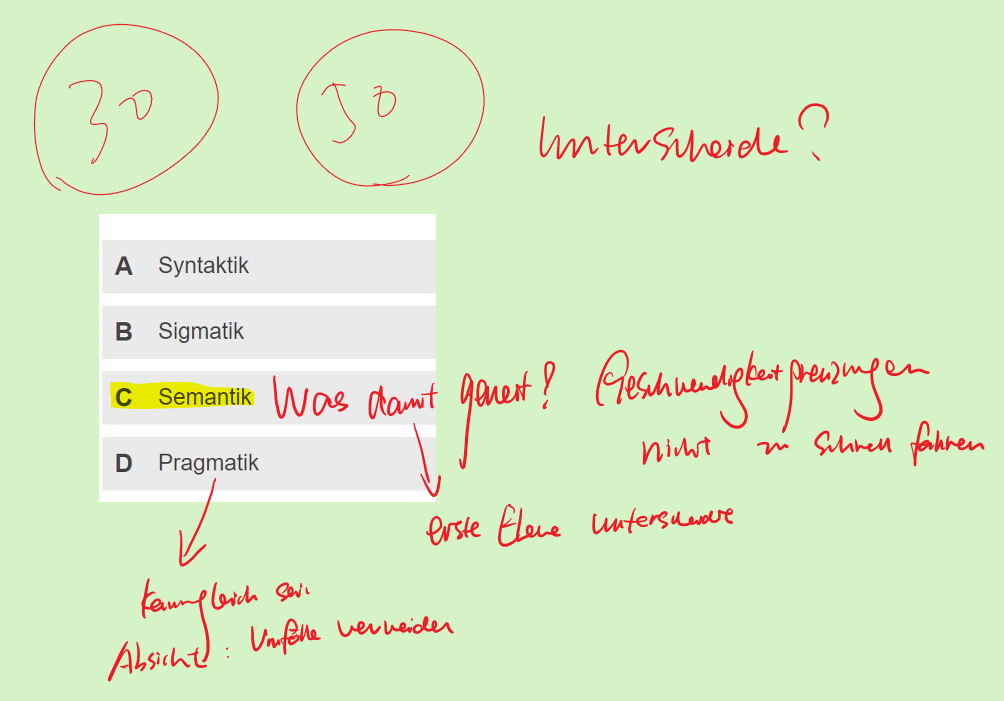 30
50
Unterscheide?
A Syntaktik
B Sigmatik
C Semantik Was damit gemeint? Geschwendigkeit
nicht zu schnell fahren
D Pragmatik
erste Ebene unterscheide
kann gleich sein
Absicht: Unfälle vermeiden